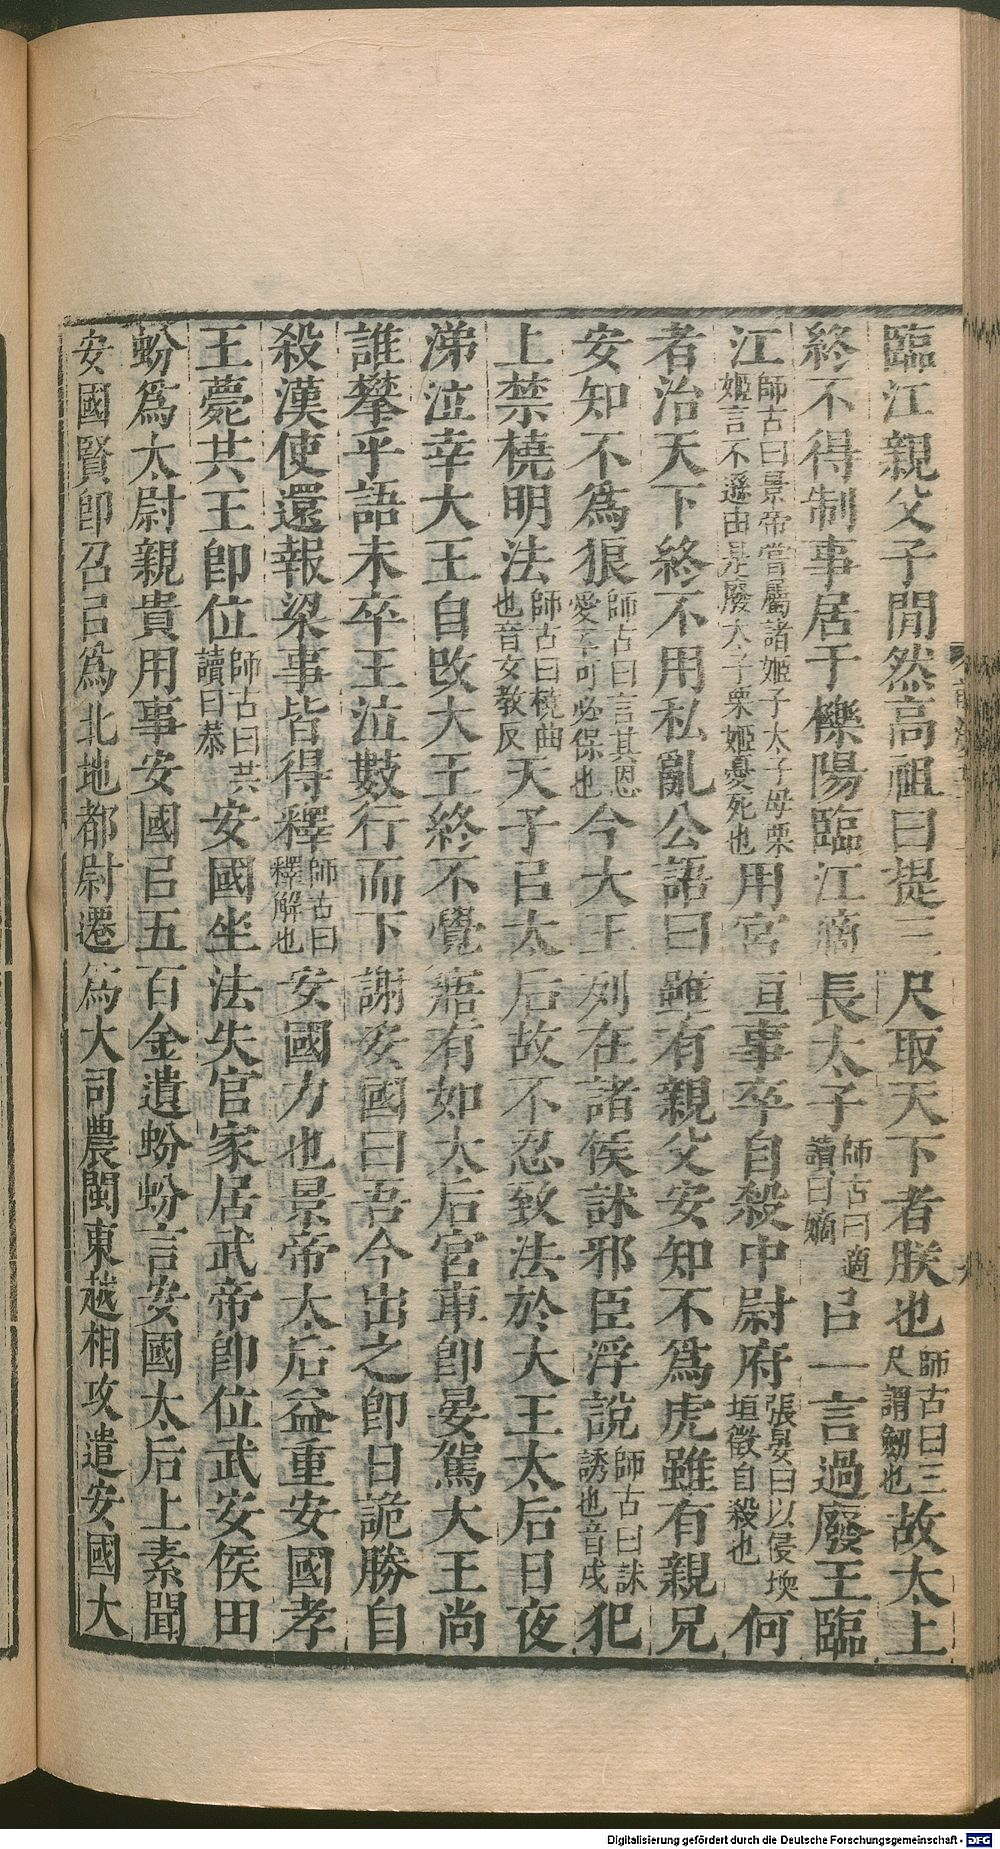 臨江親父子閒然高祖曰提三尺取天下者朕也師古曰三尺謂劒也故太上
終不得制事居于櫟陽臨江適長太子師古曰適讀曰嫡㠯一言過廢王臨
江師古曰景帝嘗屬諸姬子太子母栗姬言不遜由是廢太子栗姬憂死也用宮垣事卒自殺中尉府張晏曰以侵堧垣徵自殺也何
者治天下終不用私亂公語曰雖有親父安知不爲虎雖有親兄
安知不爲狼師古曰言其恩愛不可必保也今大王列在諸侯訹邪臣浮說師古曰訹誘也音戌犯
上禁橈明法師古曰橈曲也音女教反天子㠯太后故不忍致法於大王太后日夜
涕泣幸大王自改大王終不覺寤有如太后宮車卽晏駕大王尚
誰攀乎語未卒王泣數行而下謝安國曰吾今出之卽日詭勝自
殺漢使還報梁事皆得釋師古曰釋解也安國力也景帝太后益重安國孝
王薨共王卽位師古曰共讀曰恭安國坐法失官家居武帝卽位武安侯田
蚡爲太尉親貴用事安國㠯五百金遺蚡蚡言安國太后上素聞
安國賢卽召㠯爲北地都尉遷爲大司農閩東越相攻遣安國大
Digitalisierung gefördert durch die Deutsche Forschungsgemeinschaft - DFG